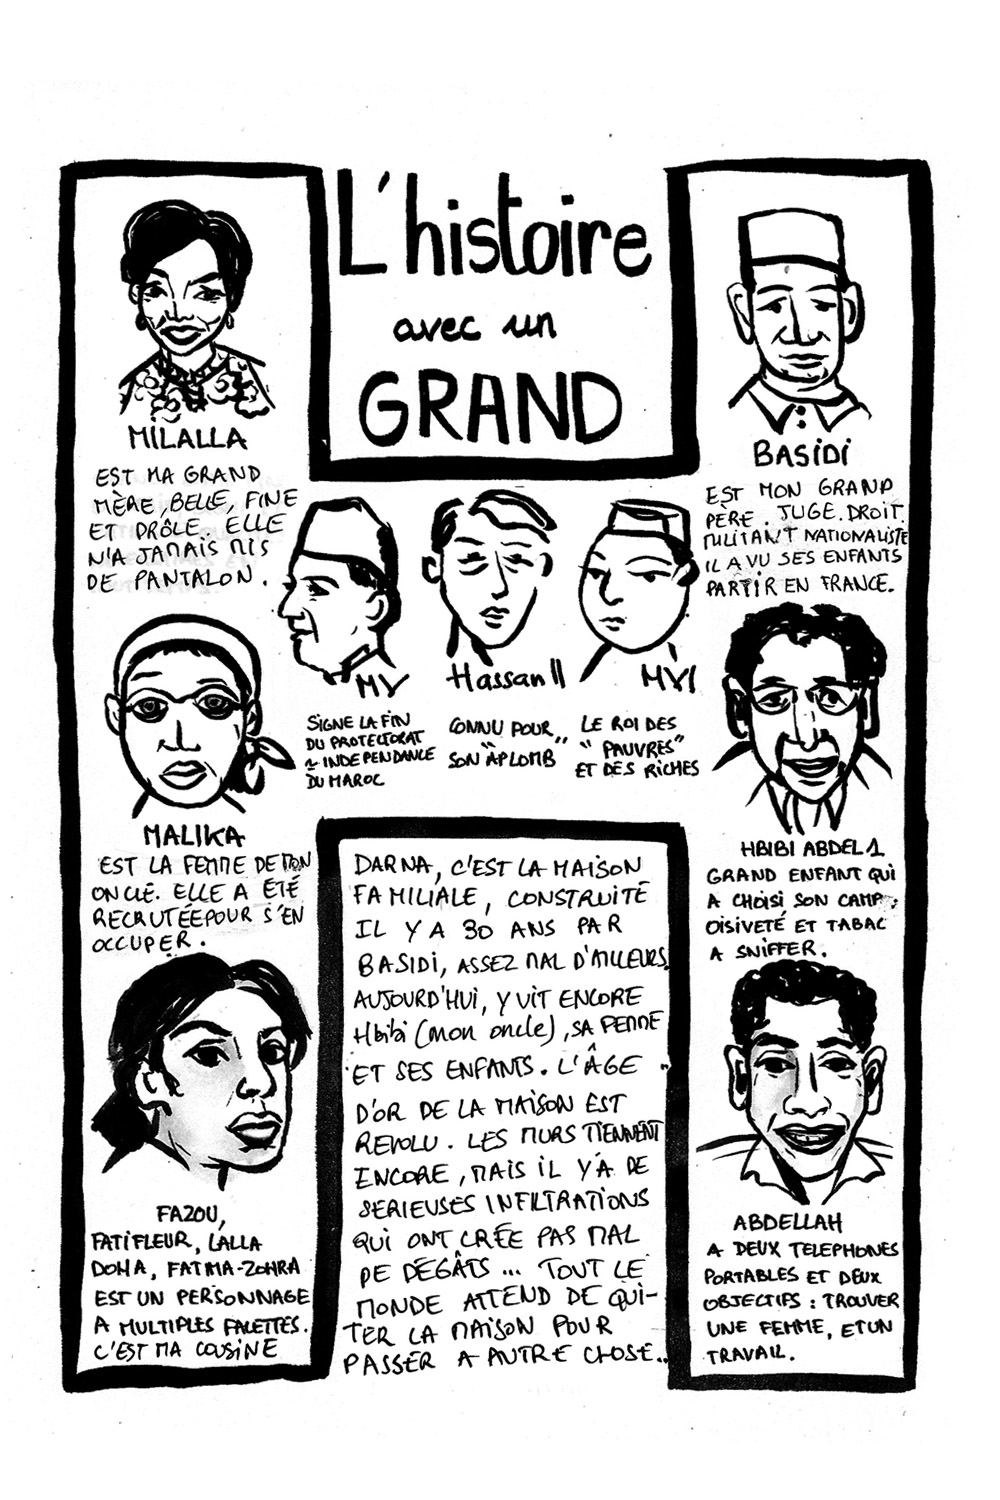 L'histoire
avec un
GRAND
MILALLA
EST MA GRAND
MÈRE, BELLE, FINE
ET DRÔLE. ELLE
N'A JAMAIS MIS
DE PANTALON.
BASIDI
EST MON GRAND
PÈRE. JUGE. DROIT.
MILITANT NATIONALISTE
IL A VU SES ENFANTS
PARTIR EN FRANCE.
MV
SIGNE LA FIN
DU PROTECTORAT
& INDEPENDANCE
DU MAROC
Hassan II
CONNU POUR
SON "APLOMB"
MVI
LE ROI DES
"PAUVRES"
ET DES RICHES
MALIKA
EST LA FEMME DE MON
ONCLE. ELLE A ÉTÉ
RECRUTÉE POUR S'EN
OCCUPER.
HBIBI ABDEL 1
GRAND ENFANT QUI
A CHOISI SON CAMP :
OISIVETÉ ET TABAC
A SNIFFER.
FAZOU,
FATIFLEUR, LALLA
DOHA, FATMA-ZOHRA
EST UN PERSONNAGE
A MULTIPLES FACETTES.
C'EST MA COUSINE
DARNA, C'EST LA MAISON
FAMILIALE, CONSTRUITE
IL Y A 30 ANS PAR
BASIDI, ASSEZ MAL D'AILLEURS.
AUJOURD'HUI, Y VIT ENCORE
Hbibi (mon oncle), SA FEMME
ET SES ENFANTS. L'ÂGE
D'OR DE LA MAISON EST
REVOLU. LES MURS TIENNENT
ENCORE, MAIS IL Y'A DE
SERIEUSES INFILTRATIONS
QUI ONT CRÉE PAS MAL
DE DÉGÂTS... TOUT LE
MONDE ATTEND DE QUI-
TER LA MAISON POUR
PASSER A AUTRE CHOSE...
ABDELLAH
A DEUX TELEPHONES
PORTABLES ET DEUX
OBJECTIFS : TROUVER
UNE FEMME, ET UN
TRAVAIL.